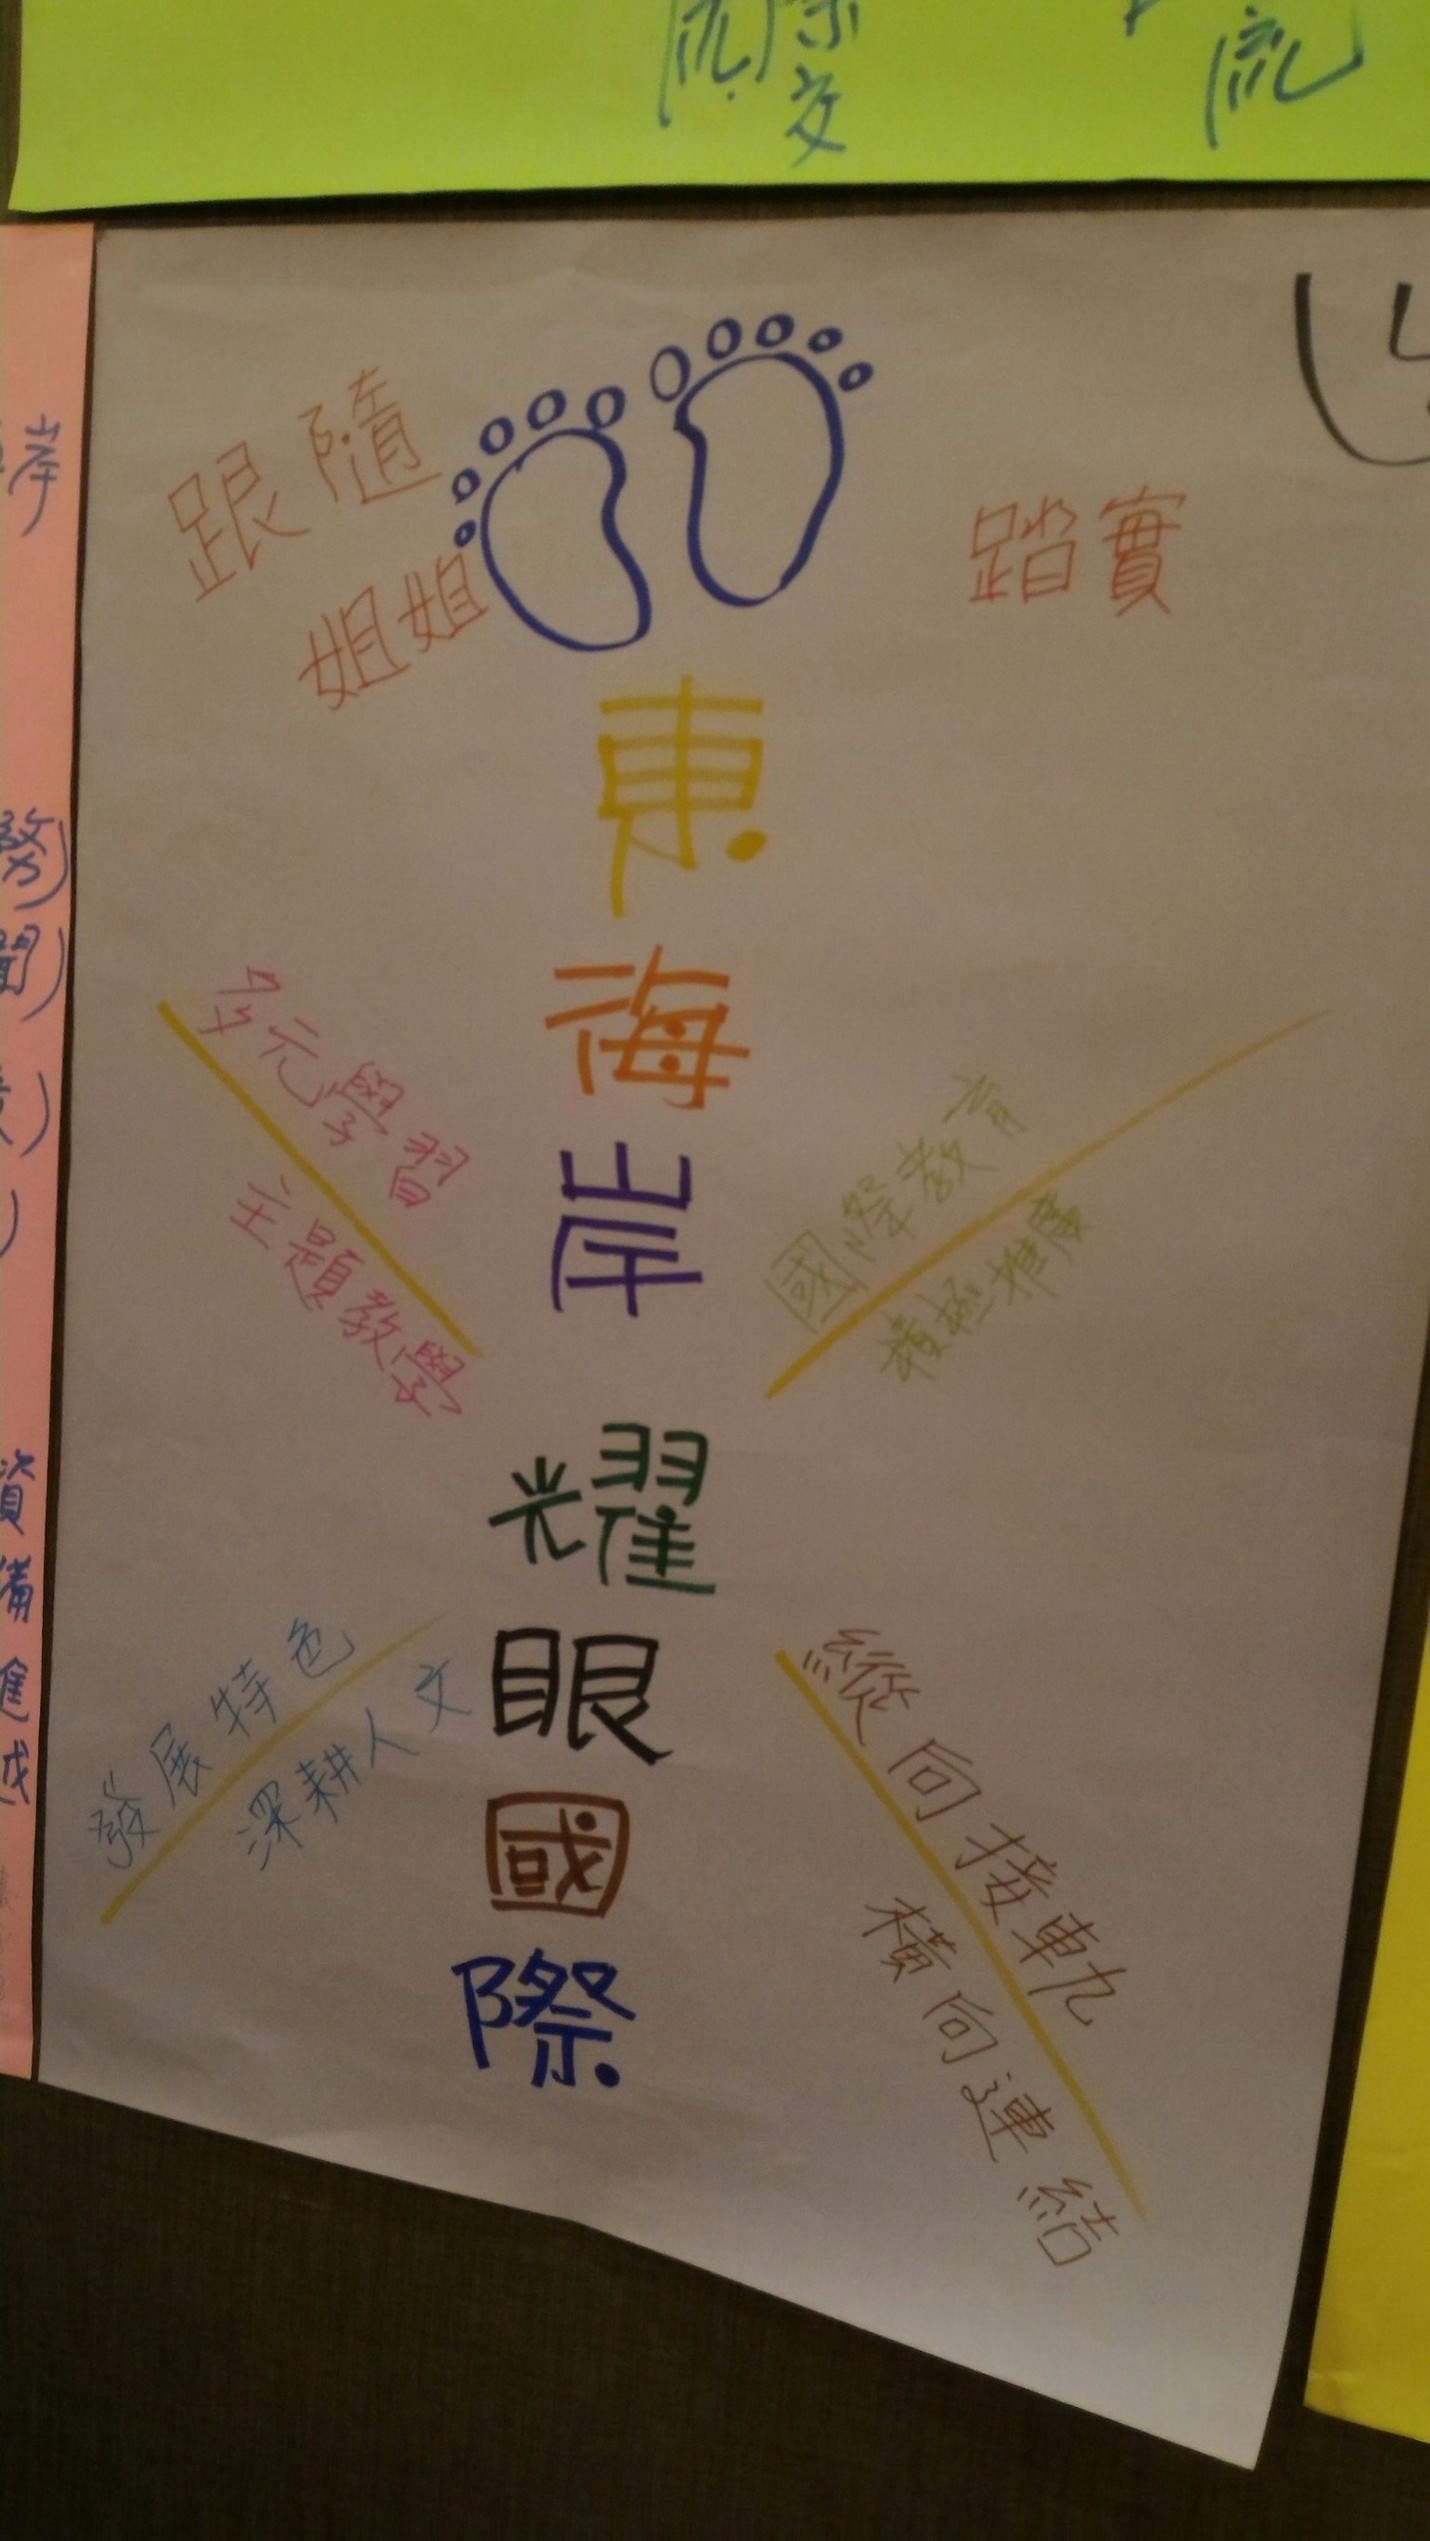 流
際交
流
跟隨
姐姐
踏實
東海岸
耀眼國際
多元學習
主題教學
國際教育
積極推廣
發展特色
深耕人文
縱向接軌
橫向連結
岸
資
備
進